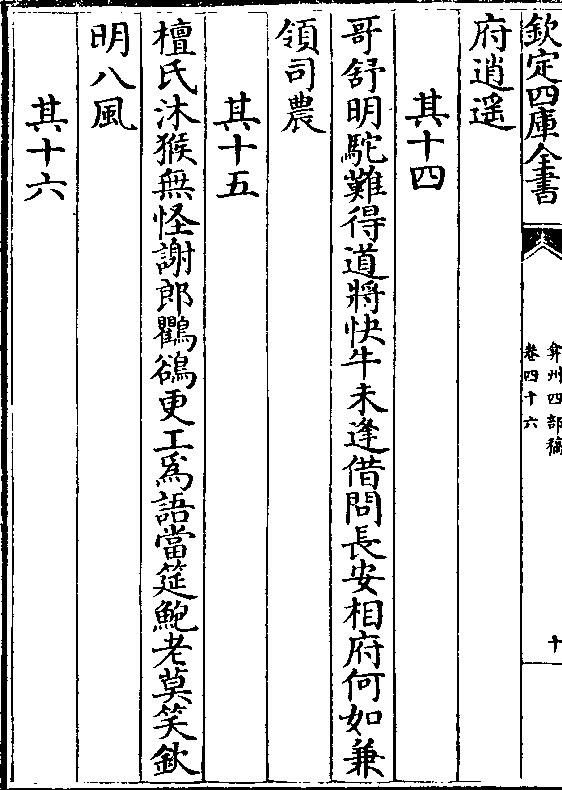 欽定四庫全書
弇州四部稿
卷四十六
十
府逍遥
其十四
哥舒明駝難得道將快牛未逢借問長安相府何如兼
領司農
其十五
檀氏沐猴無怪謝郎鸜鵒更工爲語當筵鮑老莫笑欽
明八風
其十六